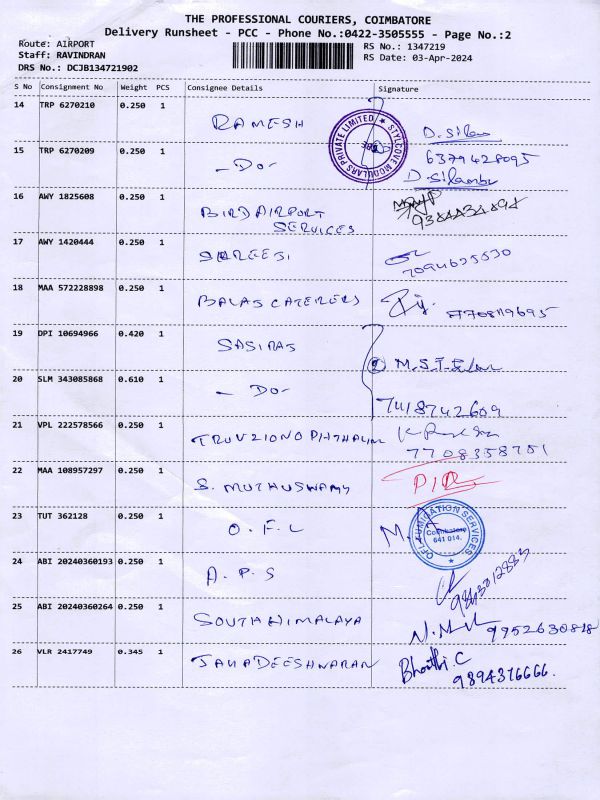 THE PROFESSIONAL COURIERS, COIMBATORE
Delivery Runsheet - PCC - Phone No.:0422-3505555 - Page No.:2
Route: AIRPORT
Staff: RAVINDRAN
DRS No.: DCJB134721902
RS No.: 1347219
RS Date: 03-Apr-2024
S No Consignment No Weight PCS Consignee Details Signature
14 TRP 6270210 0.250 1 RAMESH
STYLCOVE MODULARS PRIVATE LIMITED
15 TRP 6270209 0.250 1 -Do- 6379428095
16 AWY 1825608 0.250 1 BIRD AIRPORT
SERVICES
17 AWY 1420444 0.250 1
18 MAA 572228898 0.250 1 BALAS CATERERS
19 DPI 10694966 0.420 1
20 SLM 343085868 0.610 1 -Do- 7418742609
21 VPL 222578566 0.250 1 7708358751
22 MAA 108957297 0.250 1 S. MUTHUSWAMY
23 TUT 362128 0.250 1 O.F.L
Coimbatore
641 014.
24 ABI 20240360193 0.250 1 A.P.S
25 ABI 20240360264 0.250 1 SOUTH HIMALAYA 9952630818
26 VLR 2417749 0.345 1 Bharthi.C
9894376666.